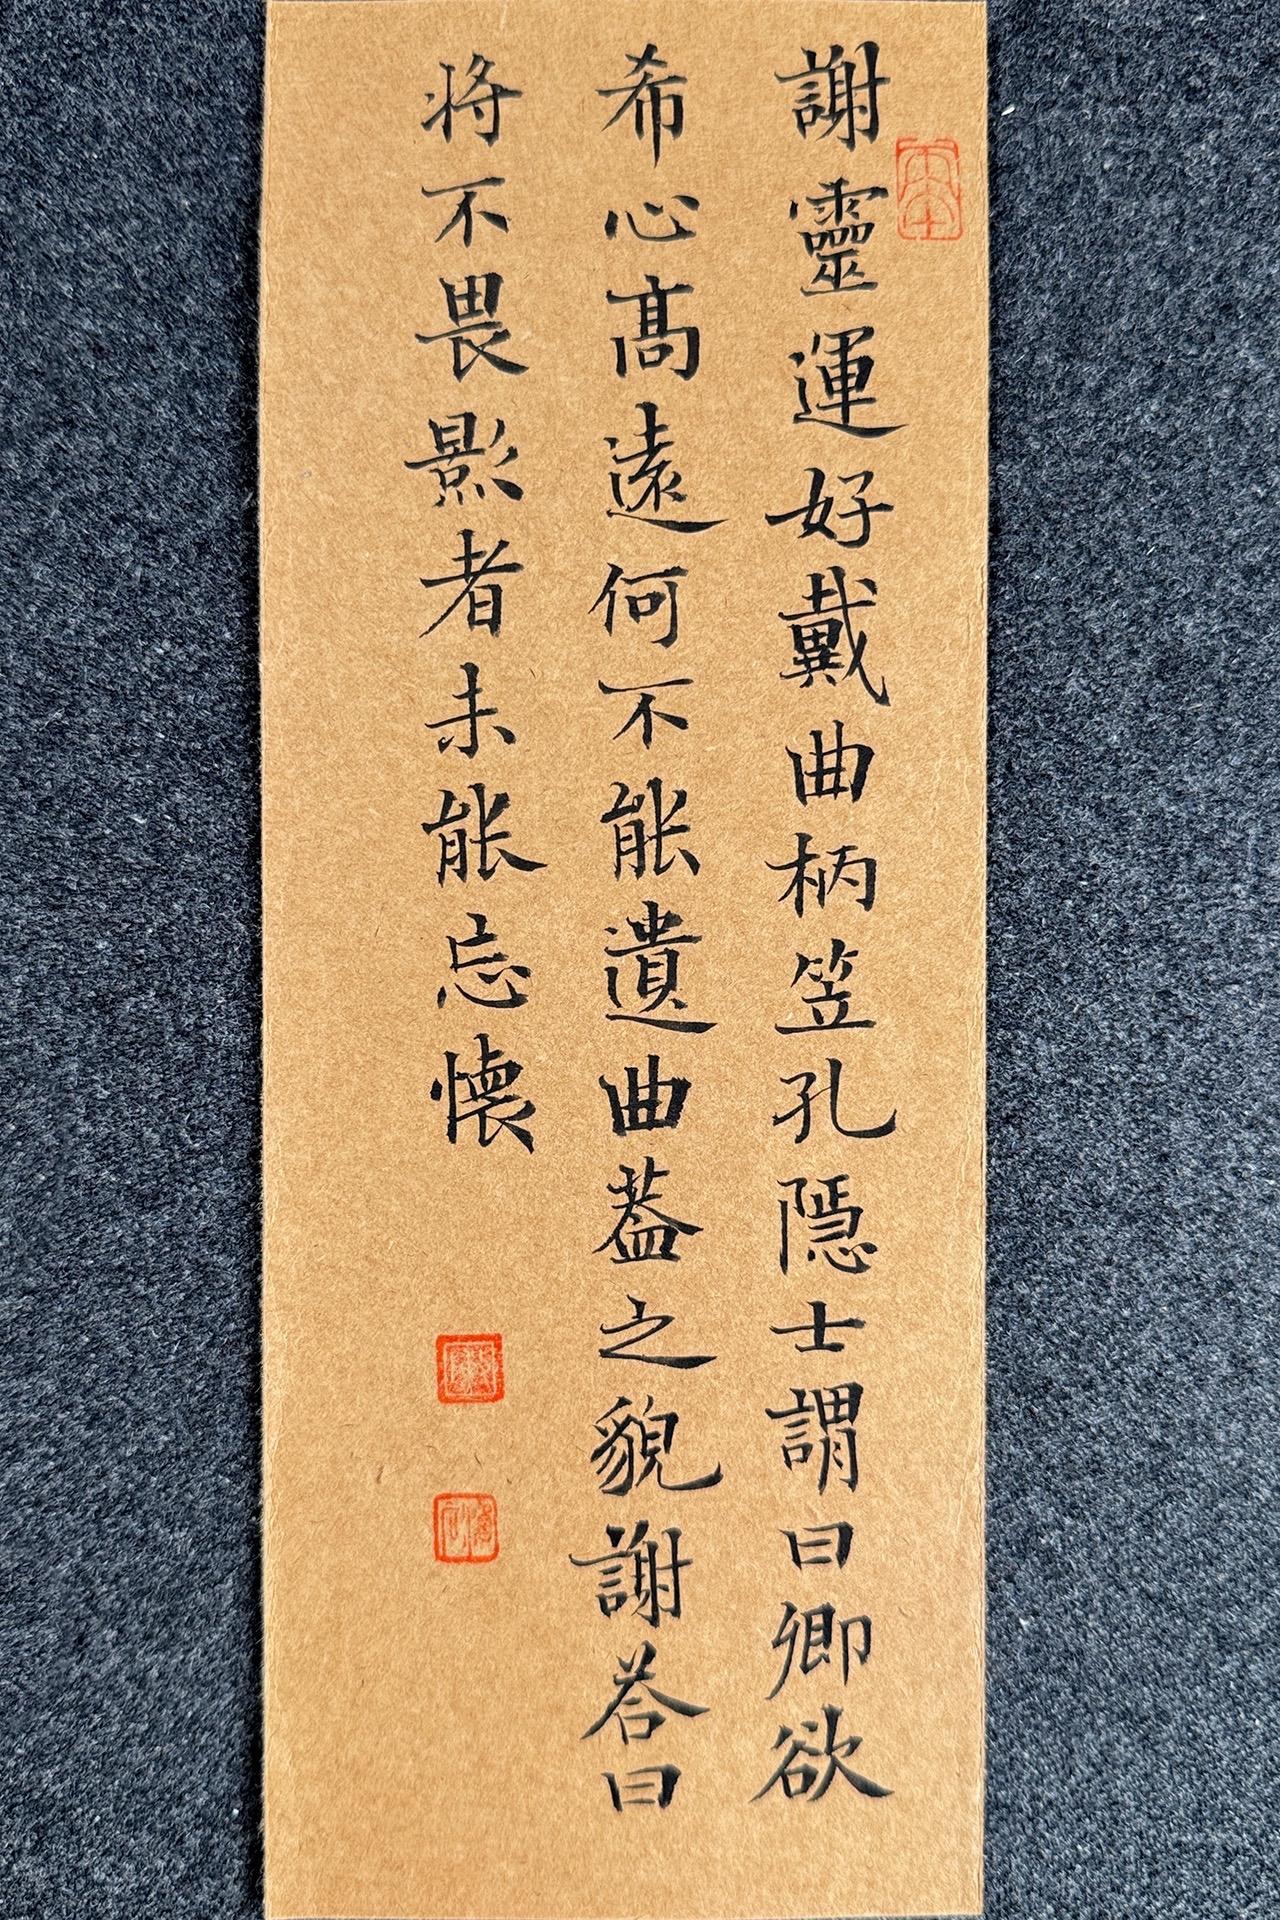 謝靈運好戴曲柄笠孔隱士謂曰卿欲
希心高遠何不能遺曲蓋之貌謝荅曰
将不畏影者未能忘懷